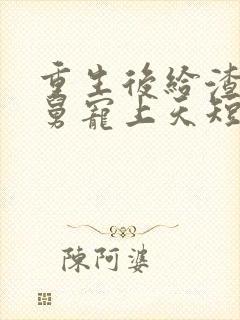 重生後給渣
舅寵上天短
陳阿婆